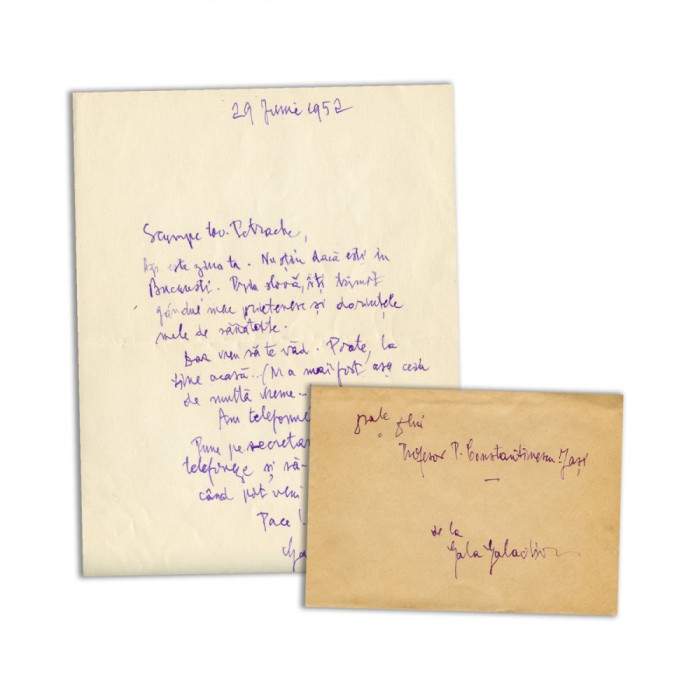 29 Junie 1952
Scumpe tov. Petrache,
Azi este ziua ta. Nu știu dacă ești în
București. Prin slovă, îți trimit
gânduri mele prietenești și dorințele
mele de sănătate.
Dar vreu să te văd. Poate, la
tine acasă... (N'a mai fost așa ceva
de multă vreme.-
Am telefonul
Pune pe secretar
telefoneze și să-
când pot veni
Pace!
Ga
D-sale D-lui
Profesor P. Constantinescu-Iași
—
de la
Gala Galaction